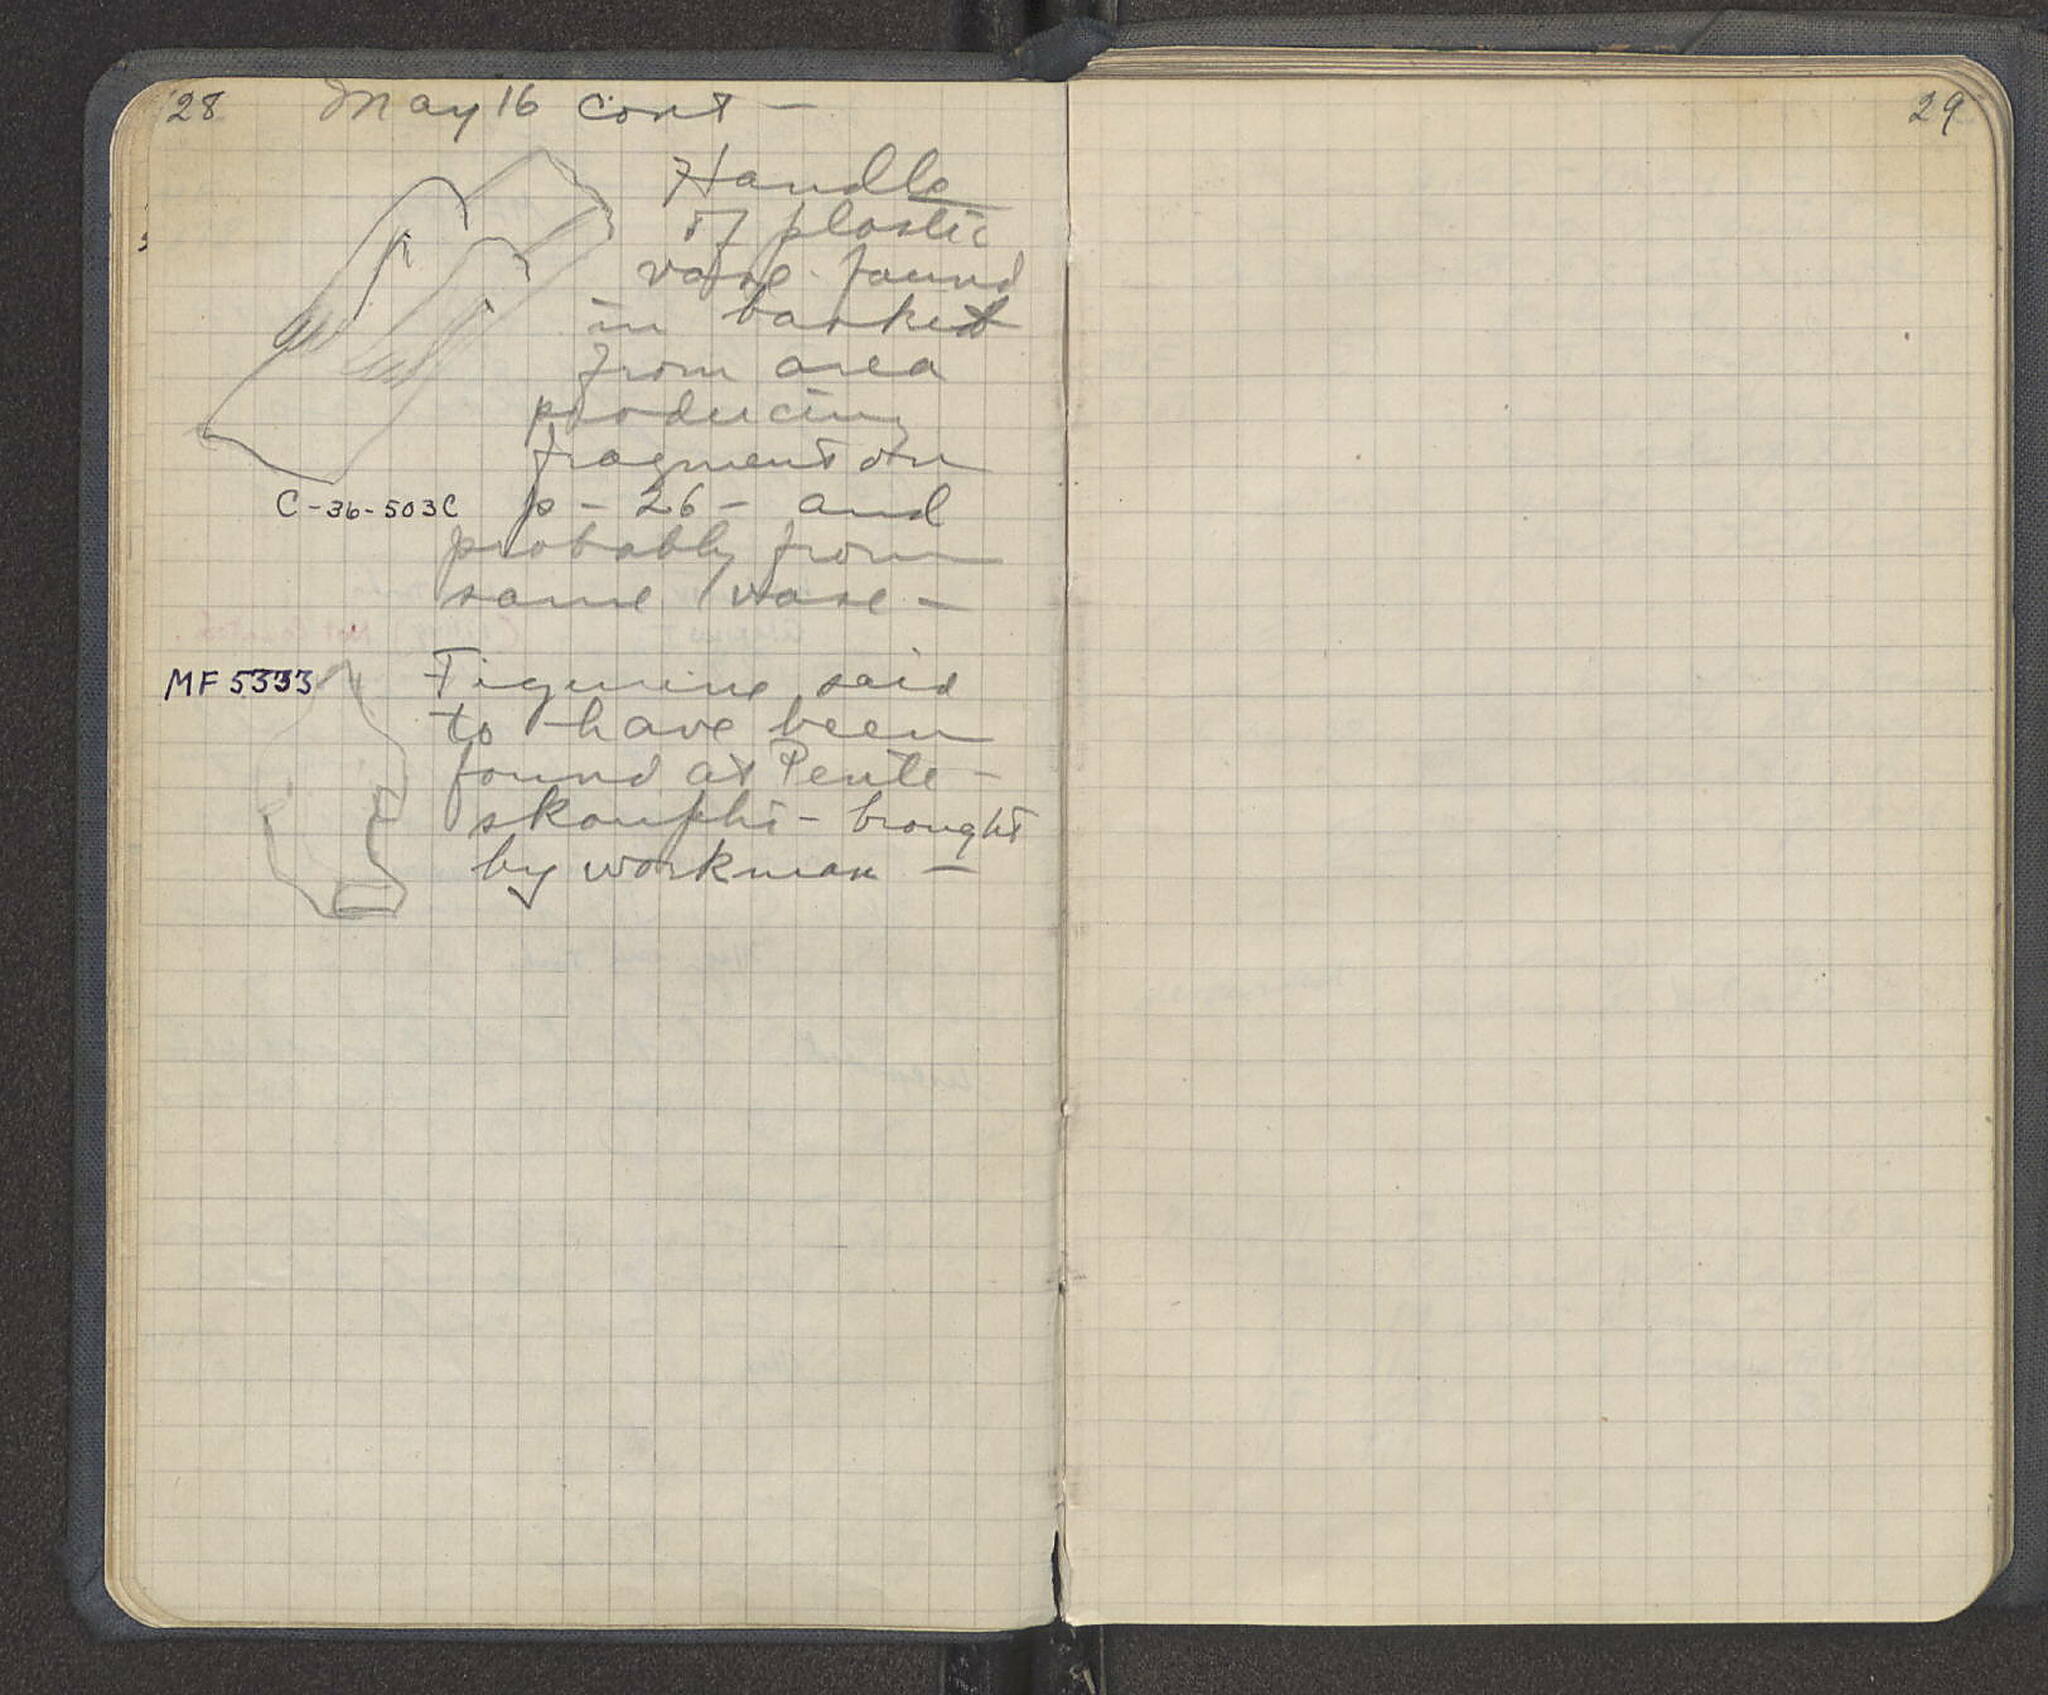 28 May 16 cont -
Handle
of plastic
vase found
in basket
from area
producing
fragment on
C-36-503C p - 26 - and
probably from
same vase -
MF 5333 Figurine said
to have been
found at Pente-
skouphi - brought
by workman -
29